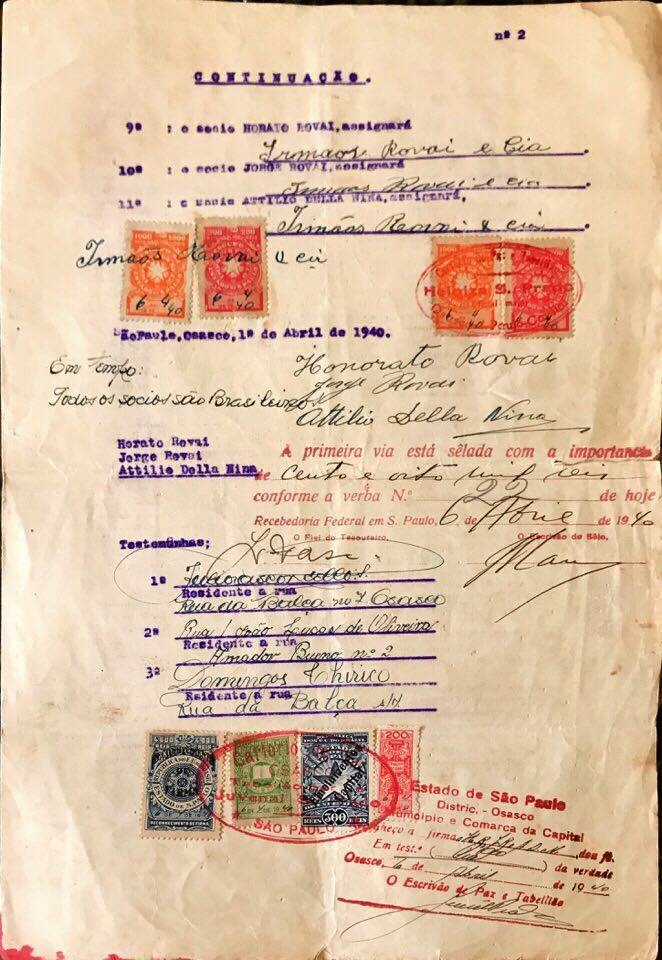 nº 2
CONTINUAÇÃO.
9º : o socio HORATO ROVAI, assignará
Irmãos Rovai e Cia
10º : o socio JORGE ROVAI, assignará
Irmãos Rovai e Cia
11º : o socio ATTILIO DELLA NINA, assignará,
Irmãos Rovai & cia
Irmãos Rovai & cia
6-4-40
6-4-40
Heloiza S. Prado
São Paulo, Osasco, 1º de Abril de 1940.
Em tempo:
Todos os socios são Brasileiros
Honorato Rovai
Jorge Rovai
Attilio Della Nina
Horato Rovai
Jorge Rovai
Attilio Della Nina
A primeira via está sêlada com a importancia
de Cento e oito mil reis
conforme a verba N.º 22 de hoje
Recebedoria Federal em S. Paulo, 6 de Abril de 1940
O Fiel do Tesoureiro, O Escrivão do Sêlo,
Testemunhas;
1º
Residente a rua
Rua da Balça nº 7 Osasco
2º João Lucas de Oliveira
Residente a rua
Amador Bueno nº 2
3º Domingos Chirico
Residente a rua
Rua da Balça s/n
CARTORIO
SÃO PAULO
RECONHECIMENTO DE FIRMA
REIS 500 REIS
200
Estado de São Paulo
Distric. - Osasco
Municipio e Comarca da Capital
Reconheço a firma dou fé.
Em test.º da verdade
Osasco, 6 de abril de 1940
O Escrivão de Paz e Tabellião